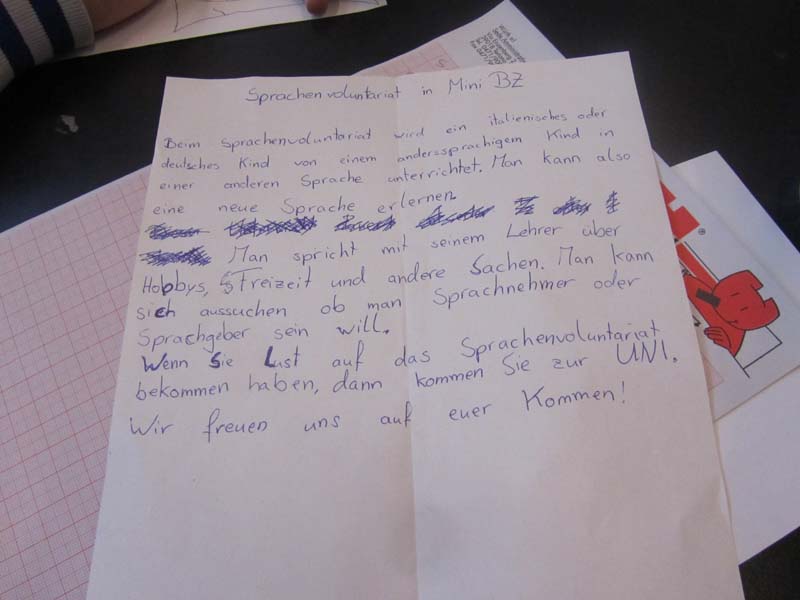 Sprachenvoluntariat in Mini BZ
Beim Sprachenvoluntariat wird ein italienisches oder
deutsches Kind von einem anderssprachigem Kind in
einer anderen Sprache unterrichtet. Man kann also
eine neue Sprache erlernen.
Man spricht mit seinem Lehrer über
Hobbys, Freizeit und andere Sachen. Man kann
sich aussuchen ob man Sprachnehmer oder
Sprachgeber sein will.
Wenn Sie Lust auf das Sprachenvoluntariat
bekommen haben, dann kommen Sie zur UNI.
Wir freuen uns auf euer Kommen!